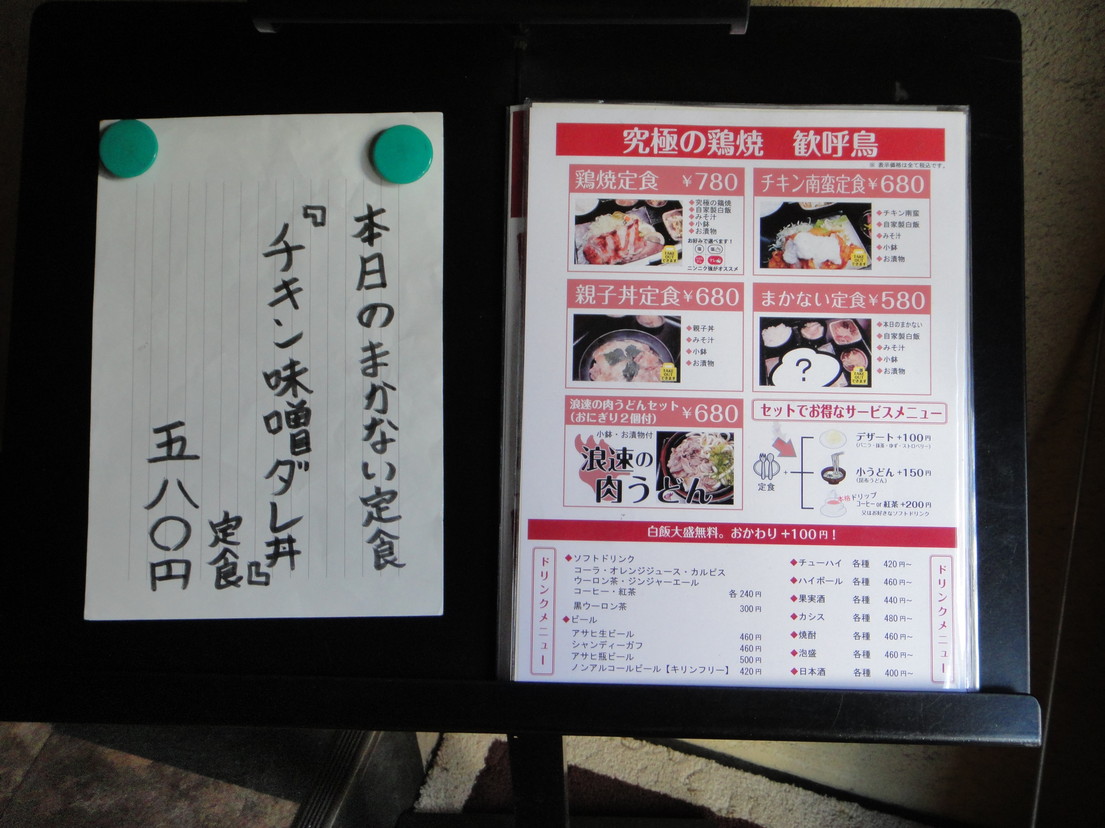 本日のまかない定食
『チキン味噌ダレ丼
定食』
五八〇円
究極の鶏焼 歓呼鳥
※ 表示価格は全て税込です。
鶏焼定食 ￥780
◆究極の鶏焼
◆自家製白飯
◆みそ汁
◆小鉢
◆お漬物
お好みで選べます！
ニンニク塩がオススメ
チキン南蛮定食￥680
◆チキン南蛮
◆自家製白飯
◆みそ汁
◆小鉢
◆お漬物
親子丼定食￥680
◆親子丼
◆みそ汁
◆小鉢
◆お漬物
まかない定食￥580
◆本日のまかない
◆自家製白飯
◆みそ汁
◆小鉢
◆お漬物
?
浪速の肉うどんセット
（おにぎり２個付） ￥680
小鉢・お漬物付
浪速の
肉うどん
セットでお得なサービスメニュー
定食
デザート +100円
（バニラ・抹茶・ゆず・ストロベリー）
小うどん +150円
（昆布うどん）
本格ドリップ
コーヒー or 紅茶 +200円
又はお好きなソフトドリンク
白飯大盛無料。おかわり +100円！
ドリンクメニュー
◆ソフトドリンク
コーラ・オレンジジュース・カルピス
ウーロン茶・ジンジャーエール
コーヒー・紅茶 各 240円
黒ウーロン茶 300円
◆ビール
アサヒ生ビール 460円
シャンディーガフ 460円
アサヒ瓶ビール 500円
ノンアルコールビール【キリンフリー】 420円
◆チューハイ 各種 420円~
◆ハイボール 各種 460円~
◆果実酒 各種 440円~
◆カシス 各種 480円~
◆焼酎 各種 460円~
◆泡盛 各種 460円~
◆日本酒 各種 400円~
ドリンクメニュー